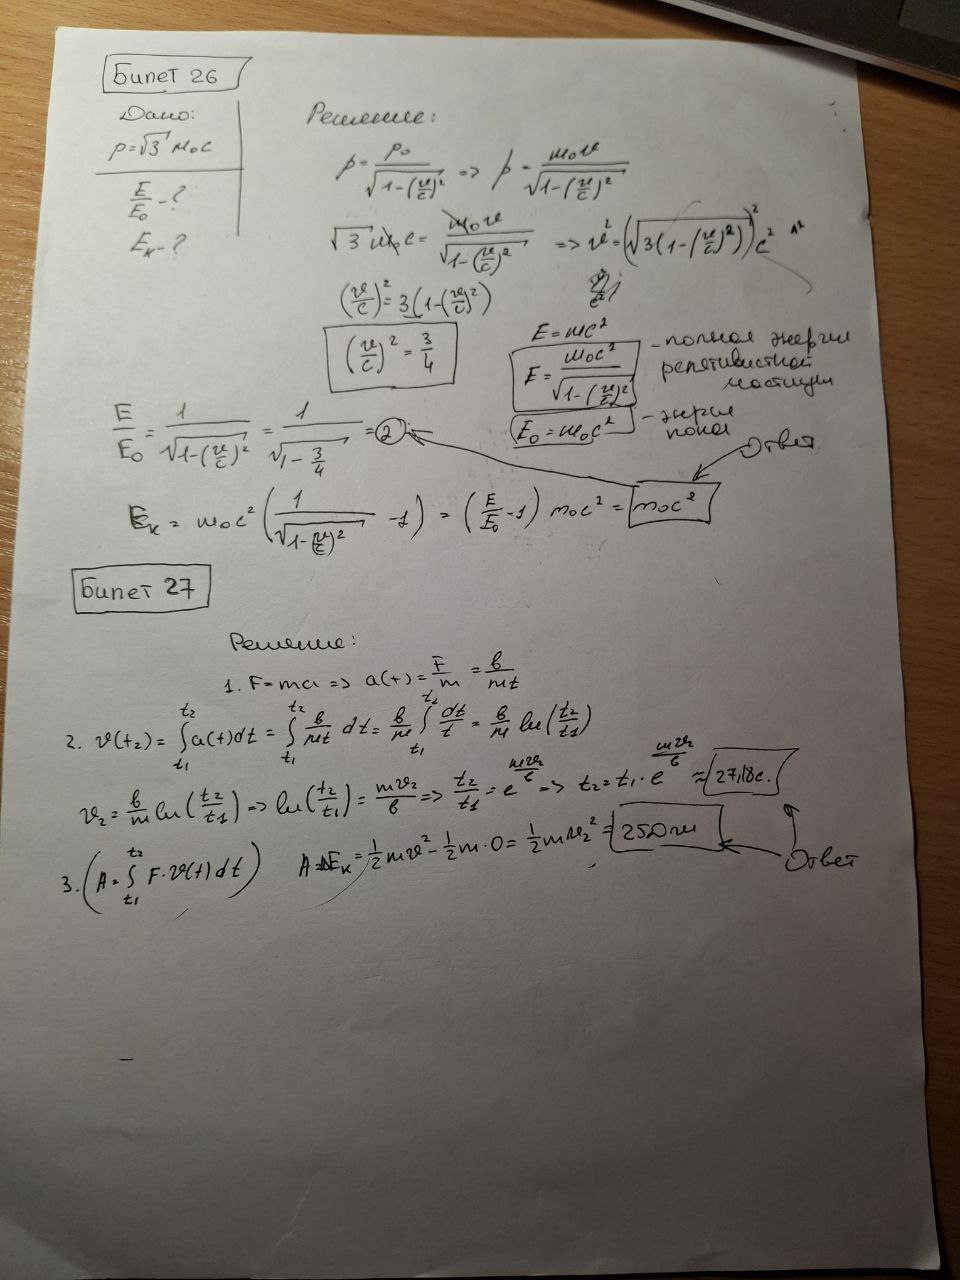 Билет 26
Дано:
p=√3 m₀c
E/E₀ - ?
Eₖ - ?
Решение:
p = p₀/√(1-(v/c)²) => p = m₀v/√(1-(v/c)²)
√3 m₀c = m₀v/√(1-(v/c)²) => v² = (√(3(1-(v/c)²)))² c²
(v/c)² = 3(1-(v/c)²)
(v/c)² = 3/4
E = mc²
E = m₀c²/√(1-(v/c)²) - полная энергия релятивистской частицы
E₀ = m₀c² - энергия покоя
E/E₀ = 1/√(1-(v/c)²) = 1/√(1-3/4) = 2
Ответ
Eₖ = m₀c² (1/√(1-(v/c)²) -1) = (E/E₀ -1) m₀c² = m₀c²
Билет 27
Решение:
1. F=ma => a(t) = F/m = b/mt
2. v(t₂) = ∫ₜ₁ᵗ² a(t)dt = ∫ₜ₁ᵗ² b/mt dt = b/m ∫ₜ₁ᵗ² dt/t = b/m ln(t₂/t₁)
v₂ = b/m ln(t₂/t₁) => ln(t₂/t₁) = mv₂/b => t₂/t₁ = e^(mv₂/b) => t₂ = t₁·e^(mv₂/b) ≈ 27,18c.
3. (A = ∫ₜ₁ᵗ² F·v(t)dt) A=ΔEₖ = 1/2 mv² - 1/2 m·0 = 1/2 mv₂² = 250
Ответ